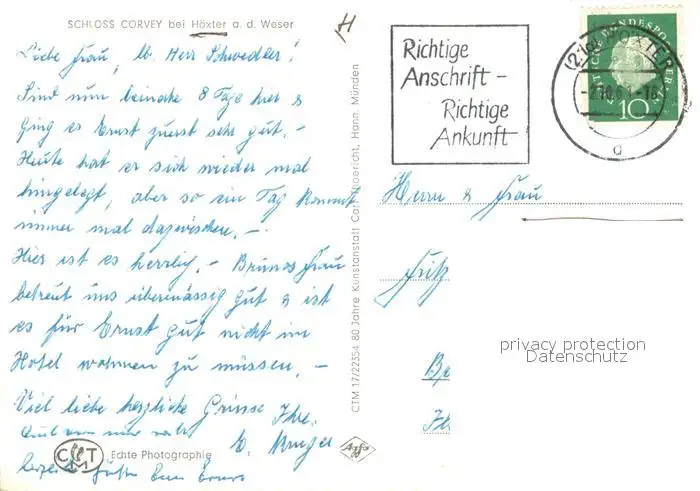 SCHLOSS CORVEY bei Höxter a. d. Weser
H
Liebe Frau, lb. Herr Schwedler!
Sind nun beinahe 8 Tage hier &
ging es Ernst zuerst sehr gut. –
Heute hat er sich wieder mal
hingelegt, aber so ein Tag kommt
immer mal dazwischen. –
Hier ist es herrlich. – Brunos Frau
betreut uns übermässig gut & ist
es für Ernst gut nicht im
Hotel wohnen zu müssen. –
Viel liebe herzliche Grüsse Ihre
Auch von mir
E. Kruger
CTM
Echte Photographie
Agfa
herzl. Grüße Ernst
CTM 17/22354 80 Jahre Kunstanstalt Carl Thoericht, Hann. Münden
Richtige
Anschrift –
Richtige
Ankunft
(21a) HÖXTER
a
DEUTSCHE BUNDESPOST BERLIN
10
Herrn & Frau
Fritz
Be
privacy protection
Datenschutz